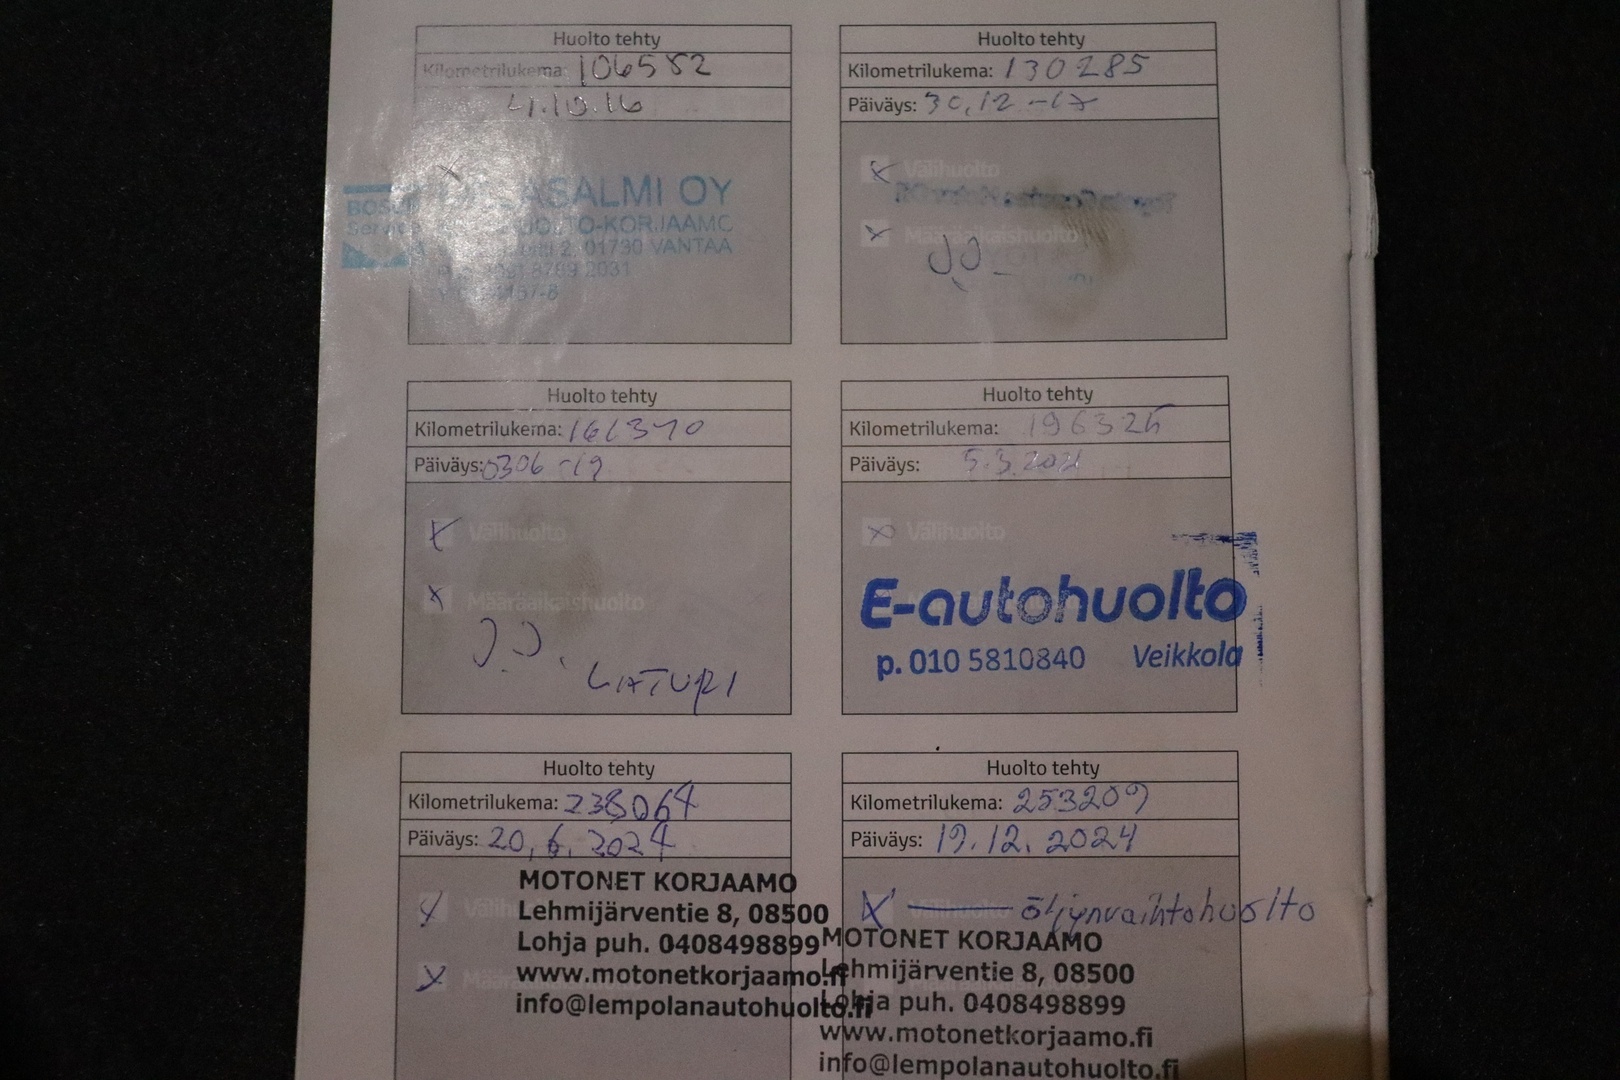 Huolto tehty
Kilometrilukema: 106582
4.10.16
BOSCH
Service
SALMI OY
HUOLTO-KORJAAMO
2, 01730 VANTAA
8789 2031
Huolto tehty
Kilometrilukema: 130285
Päiväys: 30.12 -17
Välihuolto
Määräaikaishuolto
J.J.
Huolto tehty
Kilometrilukema: 161370
Päiväys: 0306 -19
Välihuolto
Määräaikaishuolto
J.J.
LATURI
Huolto tehty
Kilometrilukema: 196325
Päiväys: 5.3.2021
Välihuolto
E-autohuolto
p. 010 5810840 Veikkola
Huolto tehty
Kilometrilukema: 238064
Päiväys: 20.6.2024
MOTONET KORJAAMO
Lehmijärventie 8, 08500
Lohja puh. 0408498899
www.motonetkorjaamo.fi
info@lempolanautohuolto.fi
Huolto tehty
Kilometrilukema: 253209
Päiväys: 19.12.2024
Välihuolto öljynvaihtohuolto
MOTONET KORJAAMO
Lehmijärventie 8, 08500
Lohja puh. 0408498899
www.motonetkorjaamo.fi
info@lempolanautohuolto.fi